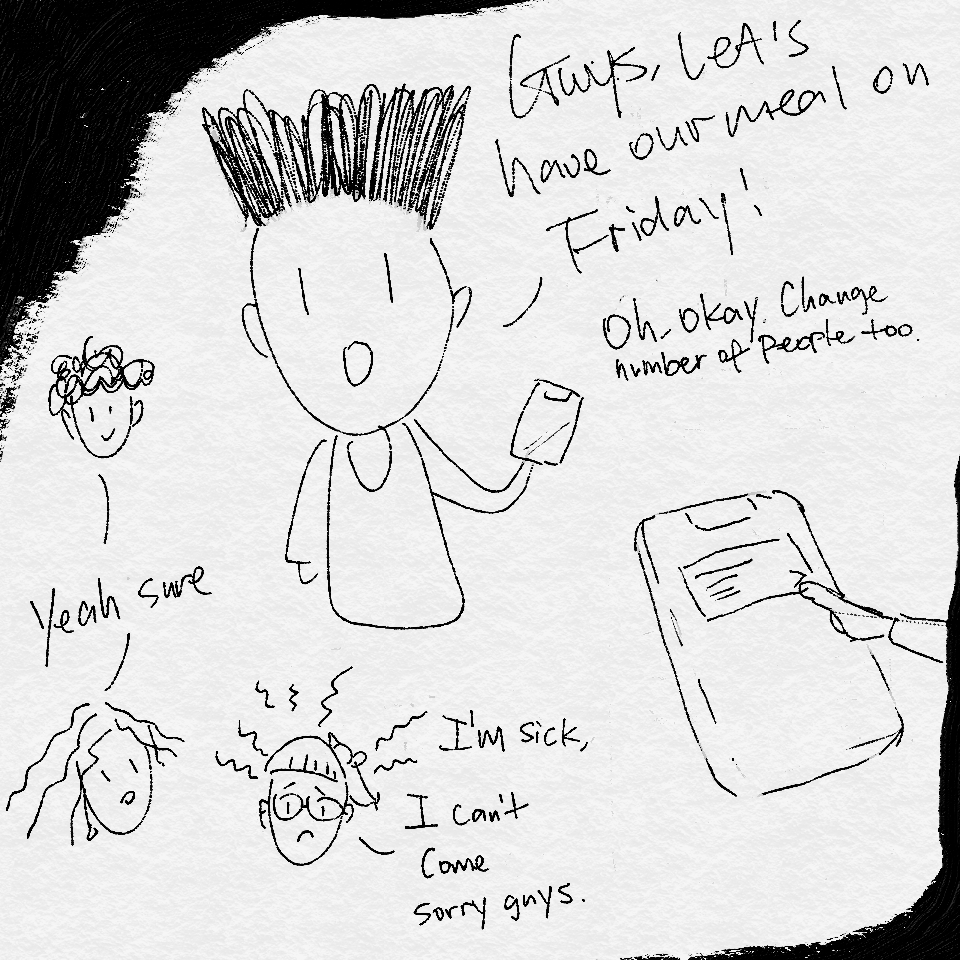 Guys, Let's
have our meal on
Friday!
Oh, okay. Change
number of people too.
Yeah sure
I'm sick,
I can't
Come
sorry guys.